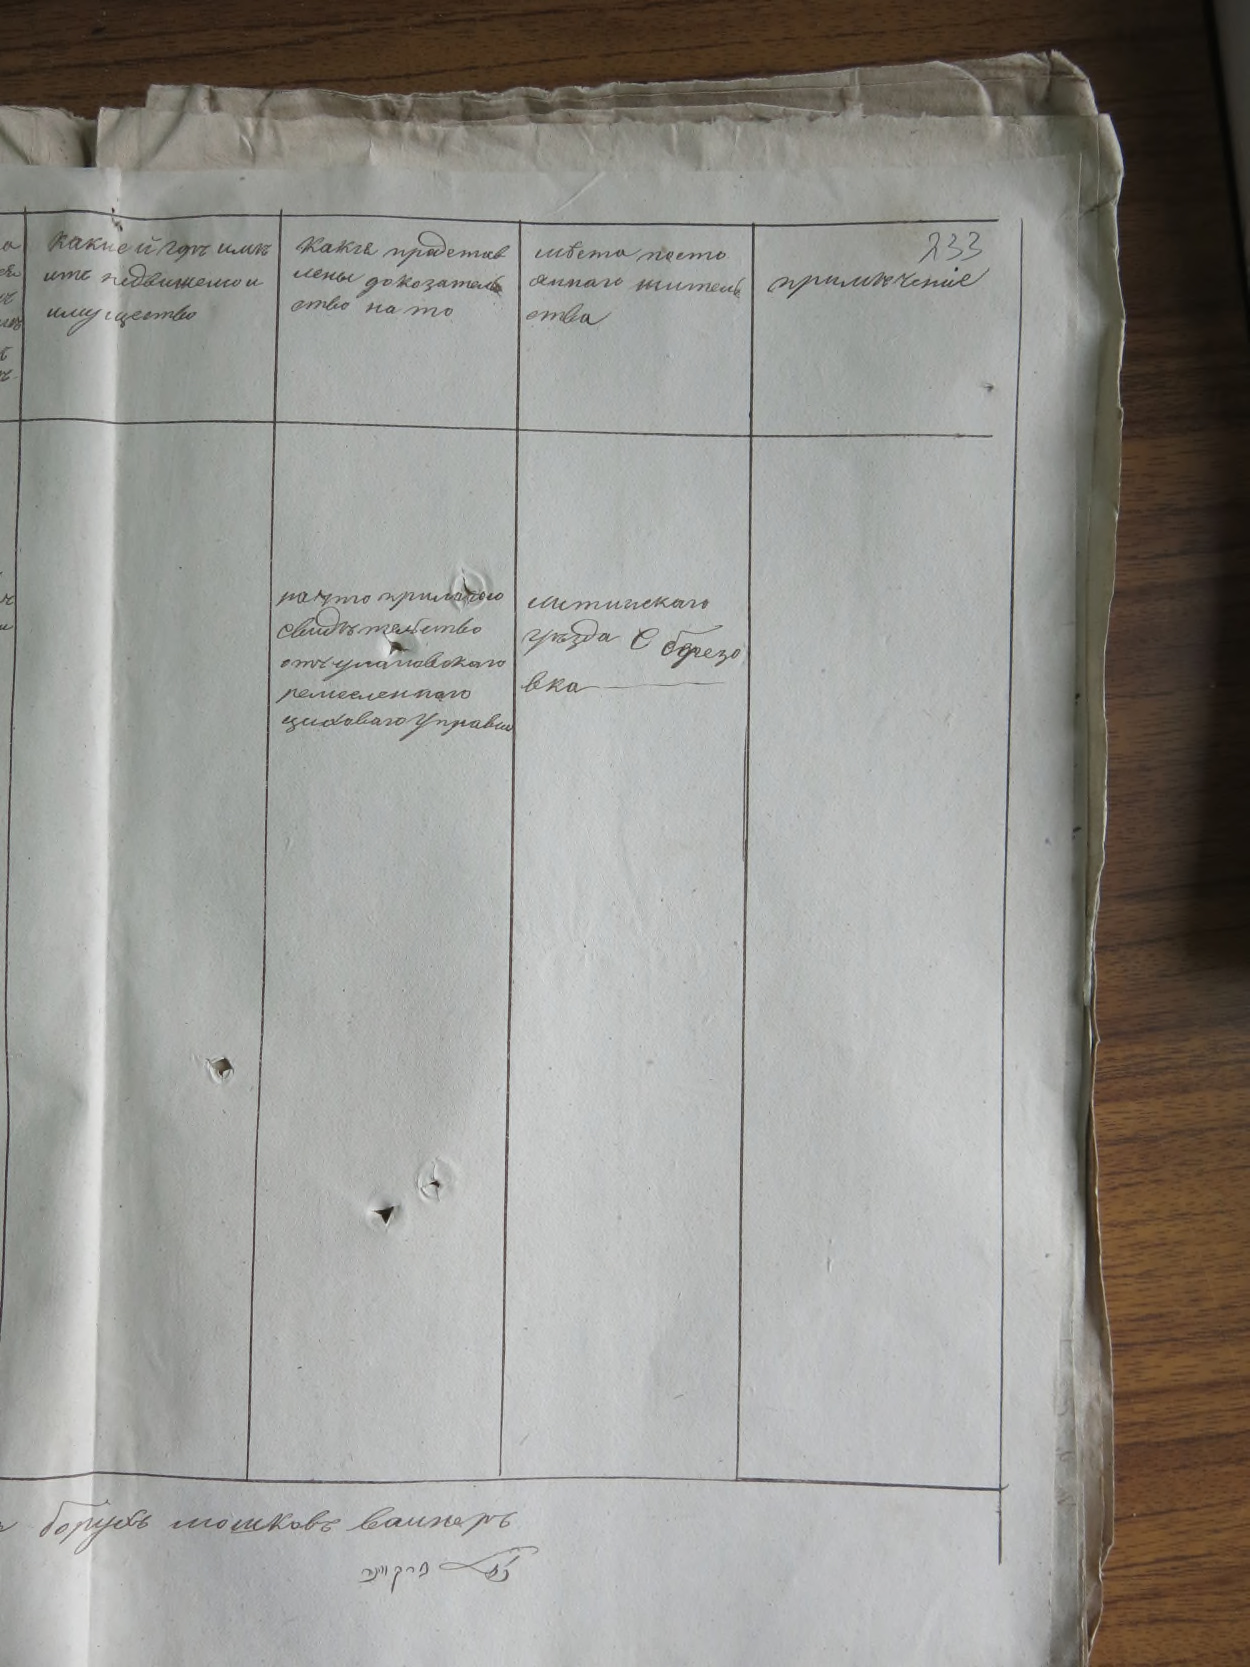 233
какие и гдѣ имѣ
итъ недвижемои
имущество
какія прадстав
лены доказатель
ство на то
мѣсто посто
яннаго житель
ства
примѣчение
на что прилагою
свидѣтелство
отъ улановского
ремесленного
цехового Управы
литинскаго
уѣзда С брезо
вка
борухъ мошковъ ваинеръ